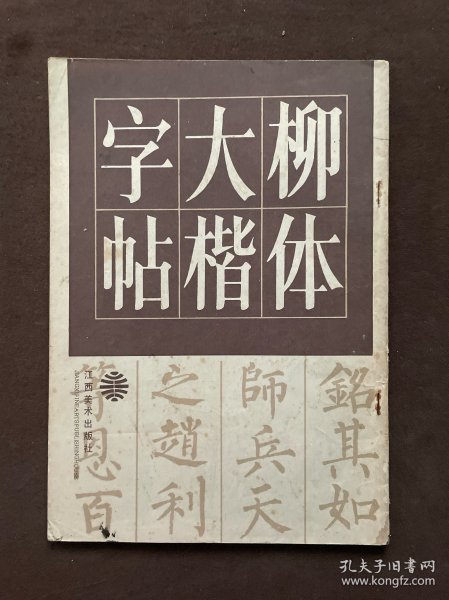 柳体
大楷
字帖
銘其如
師兵天
之趙利
符恩百
江西美术出版社
孔夫子旧书网
www.kongfz.com